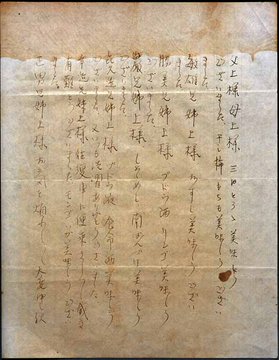 父上様 母上様 三日とろゝ美味しうござい
ました。干し柿 もちも美味しうござい
ました。
敏雄兄姉上様 おすし美味しうござい
ました。
勝美兄姉上様 ブドウ酒 リンゴ美味しう
ございました。
巌兄姉上様 しそめし 南ばんづけ美味しう
ございました。
喜久造兄姉上様 ブドウ液 養命酒美味しう
ございました。又いつも洗濯ありがとうございました。
幸造兄姉上様 往復車に便乗さして戴き
有難とうございました。モンゴいか美味しうござい
ました。
正男兄姉上様 お気を煩わして大変申し訳